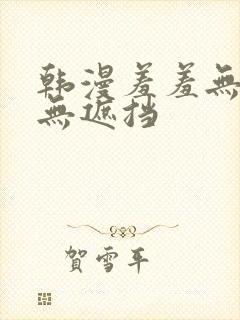 韩漫羞羞無
無遮挡
賀雪平